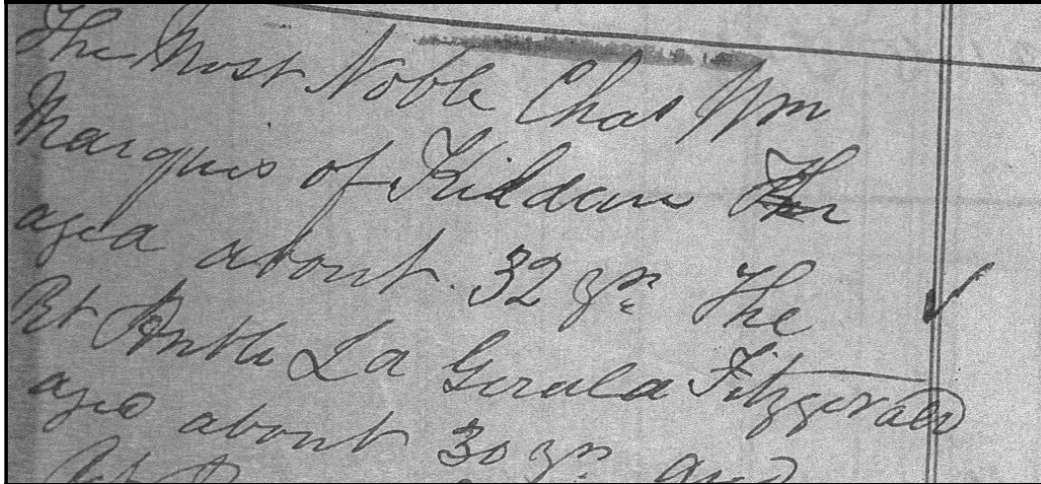 The Most Noble Chas Wm
Marquis of Kildare
aged about 32 yrs The
Rt Honble Ld Gerald Fitzgerald
aged about 30 yrs and